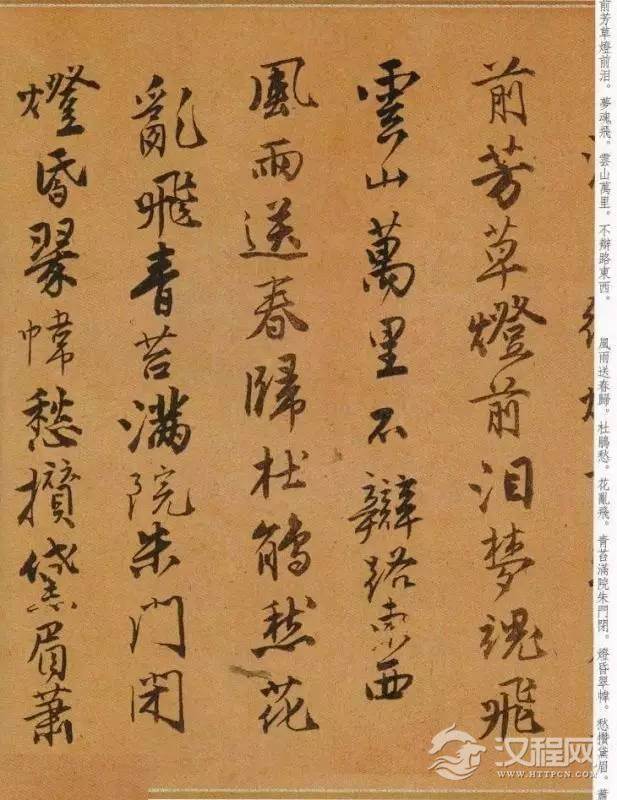 前芳草燈前泪夢魂飛
雲山萬里不辯路東西
風雨送春歸杜鵑愁花
亂飛青苔滿院朱門閉
燈昏翠幃愁攢黛眉蕭
前芳草燈前泪。夢魂飛。雲山萬里。不辯路東西。 風雨送春歸。杜鵑愁。花亂飛。青苔滿院朱門閉。燈昏翠幃。愁攢黛眉。蕭
汉程网
WWW.HTTPCN.COM